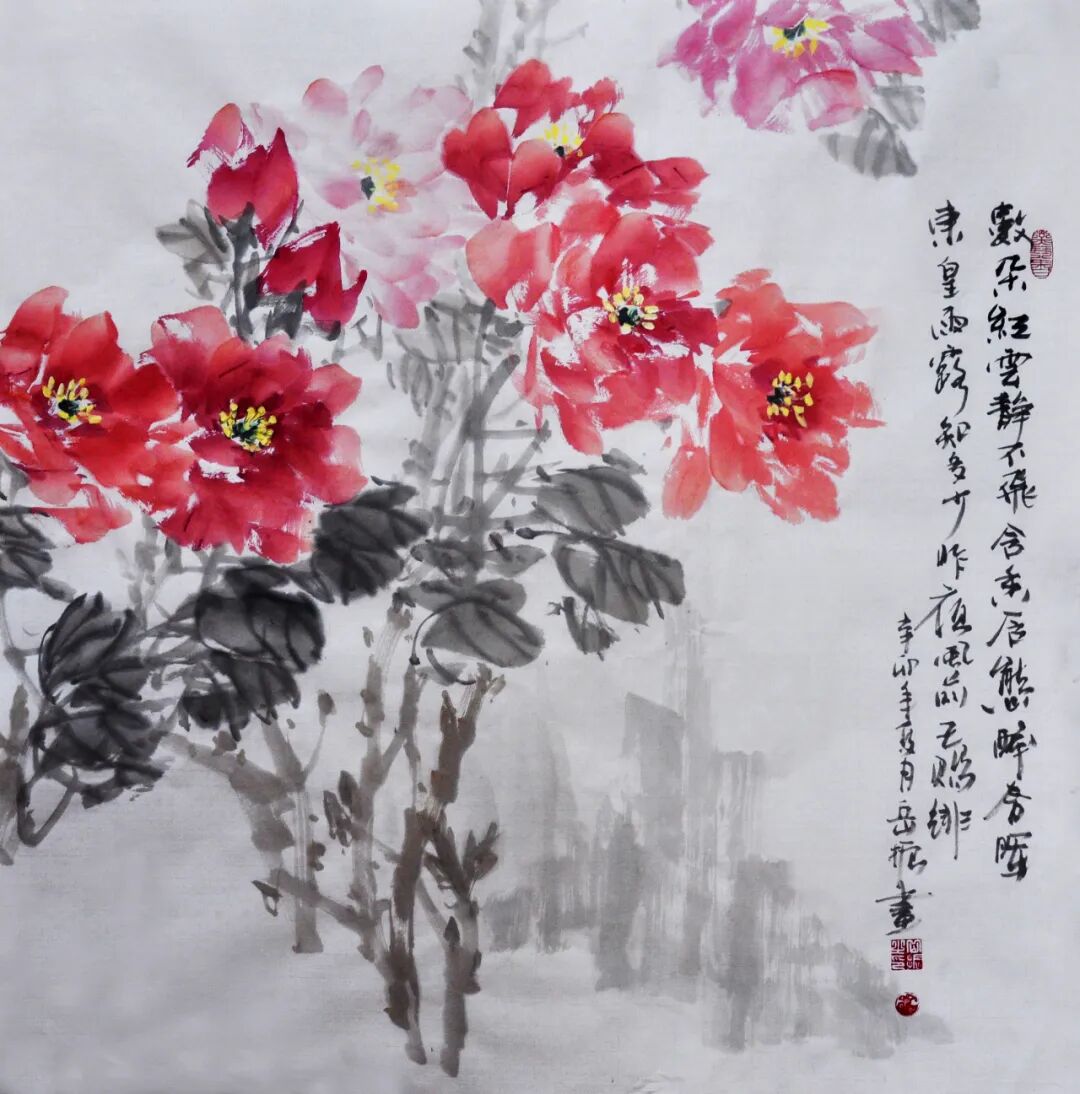 數朵紅雲靜不飛含香店態醉春暉
東皇雨露知多少昨夜風前已賜緋
辛卯年夏月岳振畫